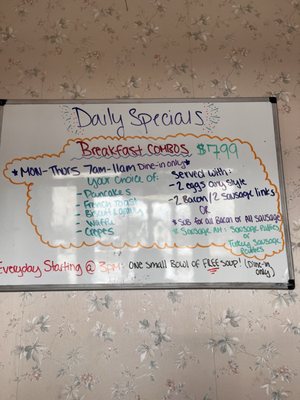 Daily Specials
Breakfast COMBOS $17.99
*MON-THURS 7am-11am Dine-in only*
Your Choice of:
- Pancakes
- French Toast
- Biscuit & gravy
- Waffle
- Crepes
Served with:
- 2 eggs any style
- 2 Bacon / 2 Sausage links
OR
* Sub for all Bacon or All Sausage
* Sausage Alt: Sausage Patties
or
Turkey Sausage
Patties
Everyday Starting @ 3pm: ONE Small Bowl of FREE Soup! (Dine-in
only)